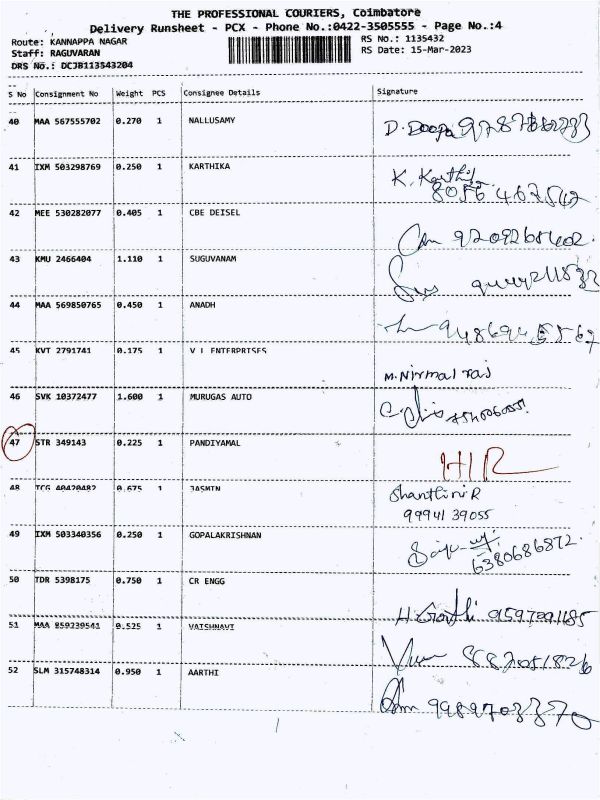 THE PROFESSIONAL COURIERS, Coimbatore
Delivery Runsheet - PCX - Phone No.:0422-3505555 - Page No.:4
Route: KANNAPPA NAGAR RS No.: 1135432
Staff: RAGUVARAN RS Date: 15-Mar-2023
DRS No.: DCJB113543204
S No Consignment No Weight PCS Consignee Details Signature
40 MAA 567555702 0.270 1 NALLUSAMY D. Deepa
41 IXM 503298769 0.250 1 KARTHIKA K. Karthik
8056 467542
42 MEE 530282077 0.405 1 CBE DEISEL
43 KMU 2466404 1.110 1 SUGUVANAM
44 MAA 569850765 0.450 1 ANADH
45 KVT 2791741 0.175 1 V I ENTERPRISES
M. Nirmal raj
46 SVK 10372477 1.600 1 MURUGAS AUTO
47 STR 349143 0.225 1 PANDIYAMAL
48 TCG 40420482 0.675 1 JASMIN Shanthini R
99941 39055
49 IXM 503340356 0.250 1 GOPALAKRISHNAN
6380686872.
50 TDR 5398175 0.750 1 CR ENGG
51 MAA 859239541 0.525 1 VAISHNAVI
52 SLM 315748314 0.950 1 AARTHI